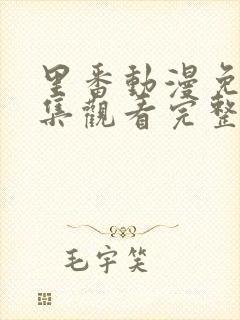 里番動漫免
集觀看完整
毛宇笑